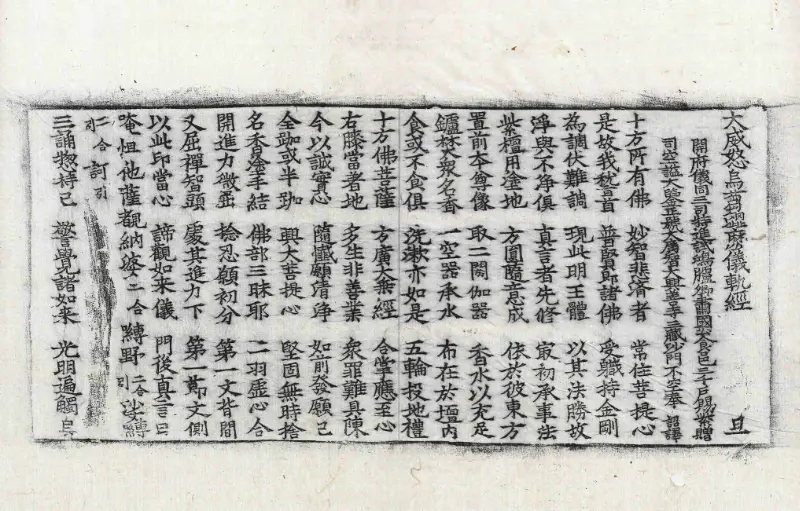 大威怒烏芻澁麼儀軌經 旦
開府儀同三司特進試鴻臚卿肅國公食邑三千戶賜紫贈
司空謚大鑒正號大廣智大興善寺三藏沙門不空奉 詔譯
十方所有佛 妙智悲濟者 常住菩提心
是故我稽首 普賢即諸佛 受職持金剛
為調伏難調 現此明王體 以其法勝故
淨與不淨俱 真言者先修 最初承事法
紫檀用塗地 方圓隨意成 依於彼東方
置前本尊像 取二閼伽器 香水以充足
鑪焚衆名香 一空器承水 布在於壇内
食或不食俱 洗漱亦如是 五輪投地禮
十方佛菩薩 方廣大乘經 合掌應至心
右膝當著地 多生非善業 衆罪難具陳
今以誠實心 隨懺願清淨 如前發願已
全跏或半跏 興大菩提心 堅固無時捨
名香塗手結 佛部三昧耶 二羽虛心合
開進力微屈 捻忍願初分 第一文背間
又屈禪智頭 處其進力下 第一節文側
以此印當心 諦觀如來儀 門後真言曰
唵怛他蘖覩納婆二合嚩野引二合娑嚩
二合引訶引
三誦想持已 警覺諸如來 光明遍觸身